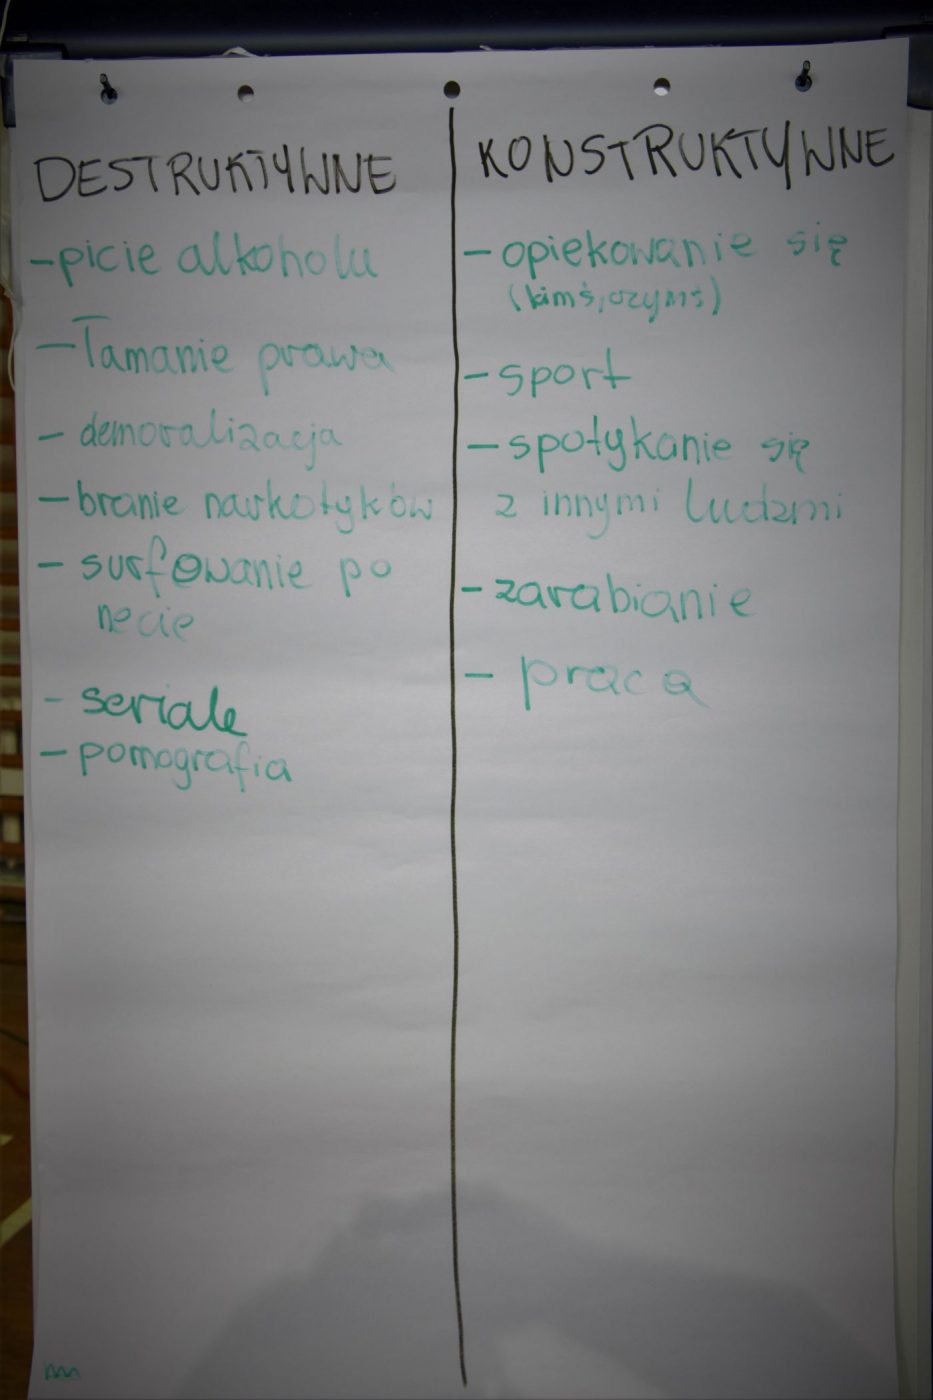 DESTRUKTYWNE
- picie alkoholu
- Łamanie prawa
- demoralizacja
- branie narkotyków
- surfowanie po
necie
- seriale
- pornografia
KONSTRUKTYWNE
- opiekowanie się
(kimś, czymś)
- sport
- spotykanie się
z innymi ludzmi
- zarabianie
- praca